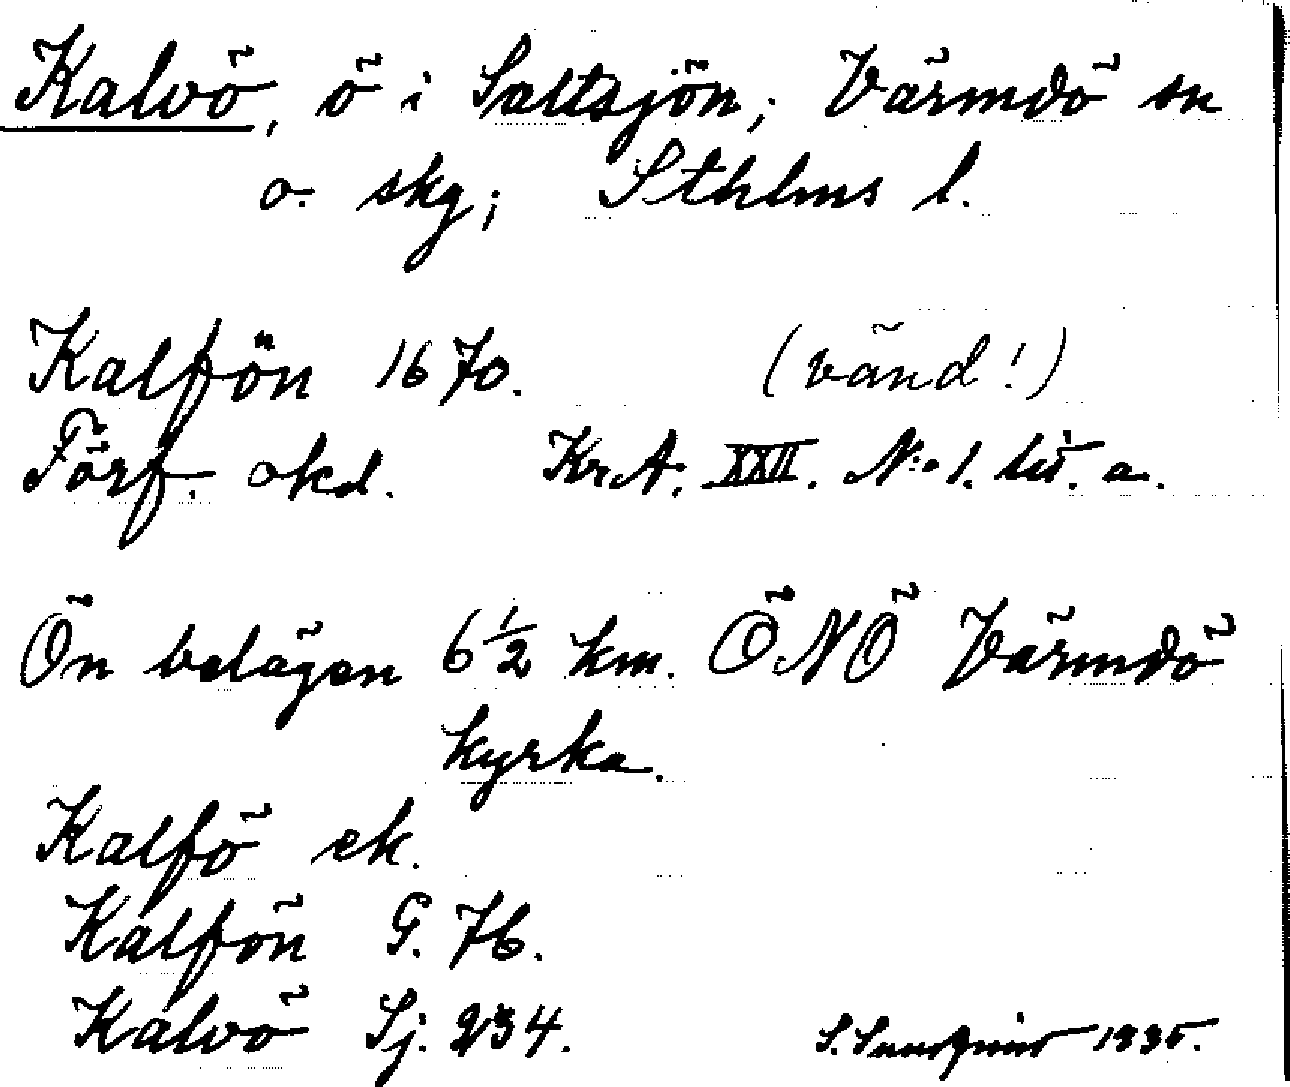 Kalvö, ö i Saltsjön; Värmdö sn
o. skg; Sthlms l.
Kalfön 1670. (vänd!)
Förf. okd. Kr.A. XXII. No 1. lit. a.
Ön belägen 6 1/2 km. ÖNÖ Värmdö
kyrka.
Kalfö ek.
Kalfön G. 76.
Kalvö Sj. 234.
S. 1935.